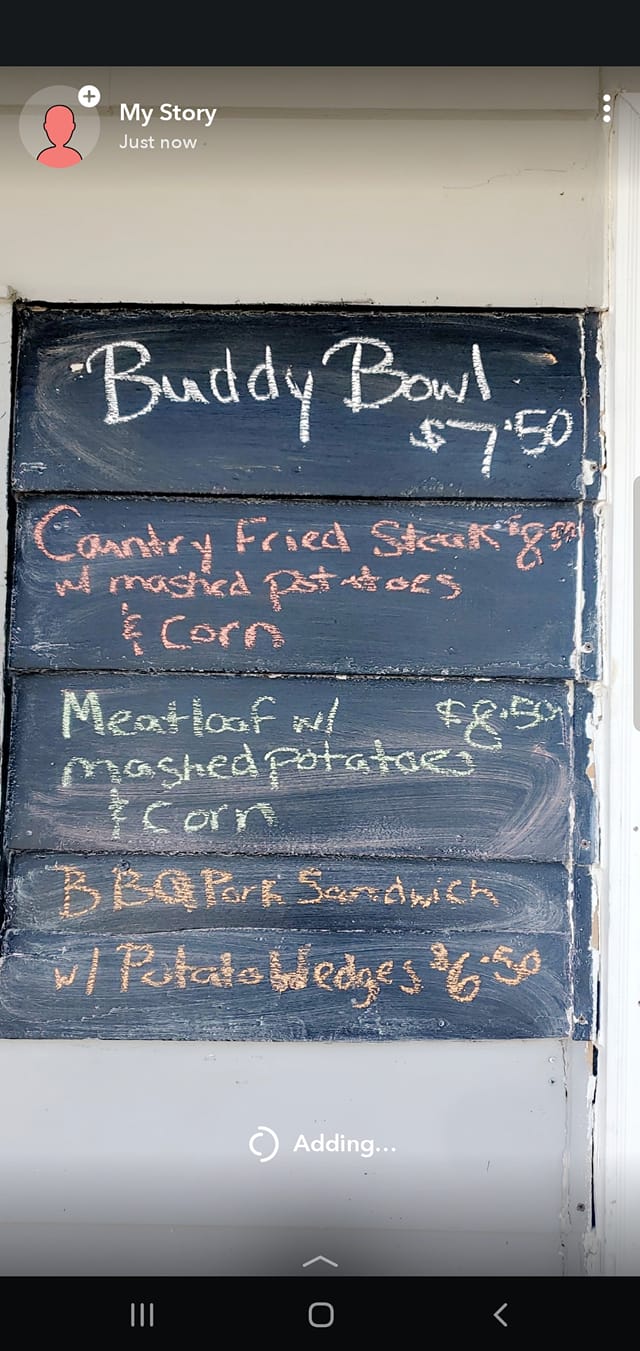 My Story
Just now
Buddy Bowl
$7.50
Country Fried Steak $8.50
w/ mashed potatoes
& Corn
Meatloaf w/ $8.50
mashed potatoes
& Corn
BBQ Pork Sandwich
w/ Potato Wedges $6.50
Adding...